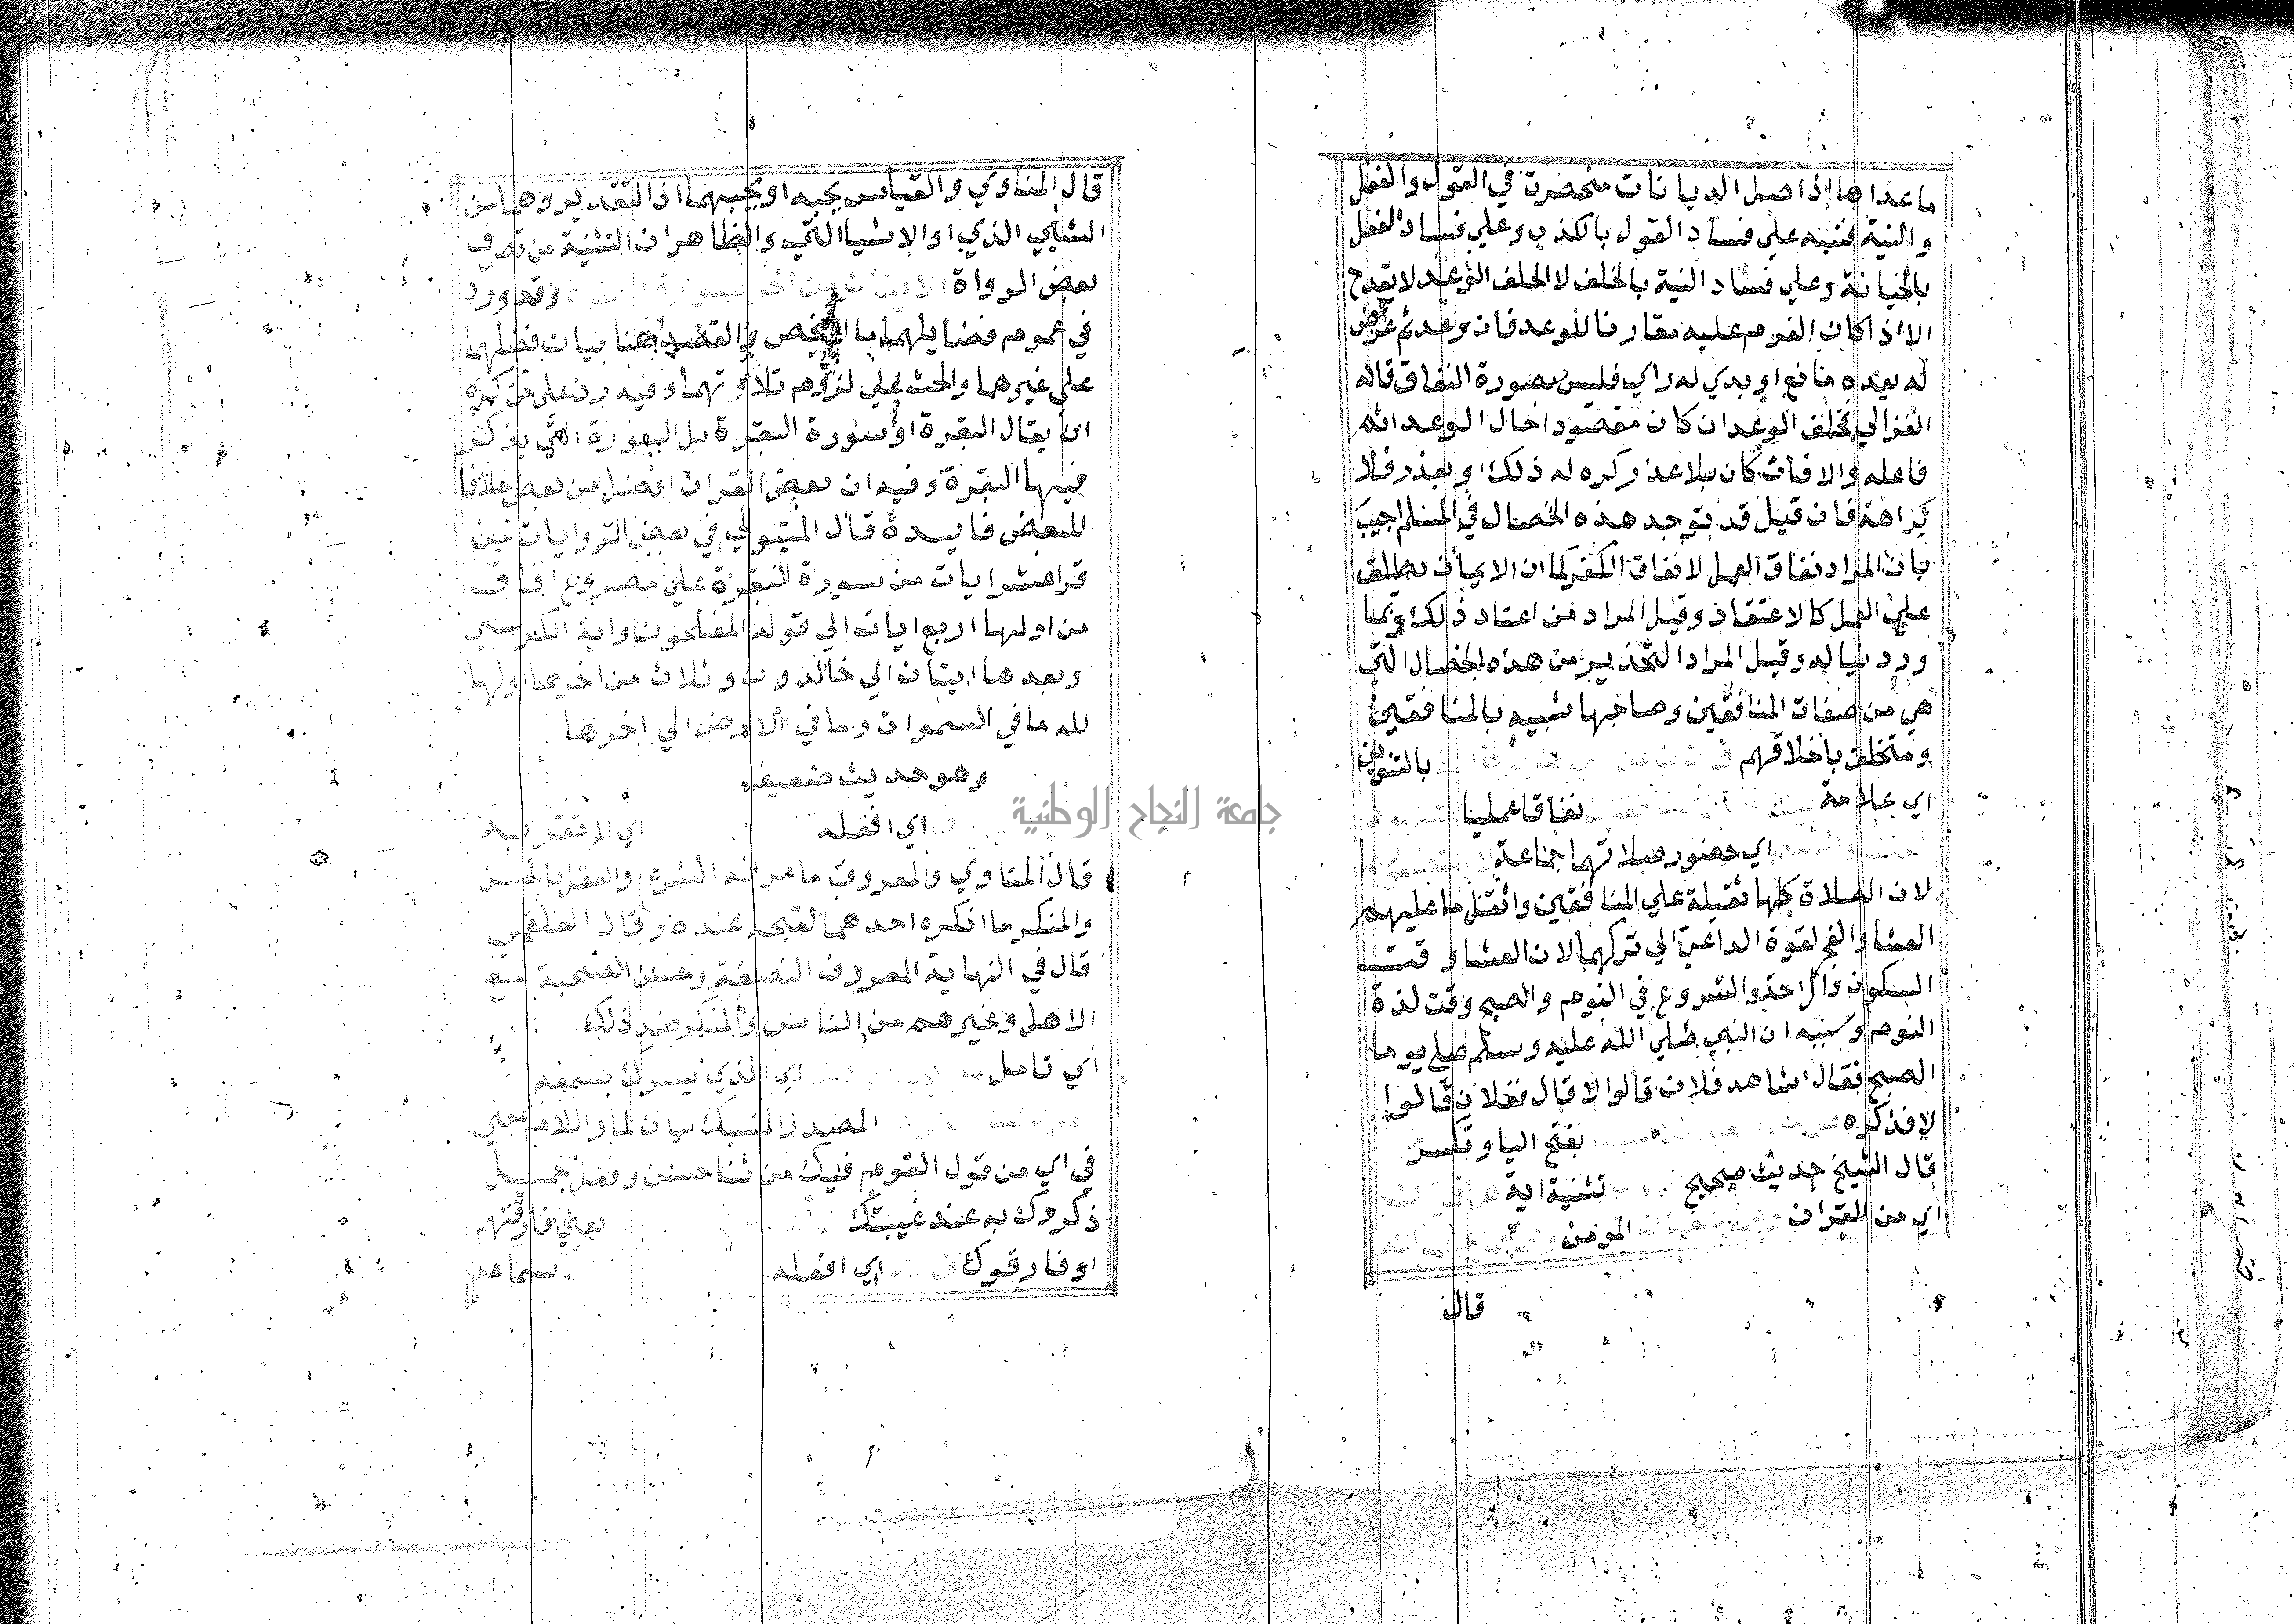 ما عداها اذ اصل الديانات منحصرة في القول والفعل
والنية فنبه علي فساد القول بالكذب وعلي فساد الفعل
بالخيانة وعلي فساد النية بالخلف لا الخلف الوعد لا يقدح
الا اذا كان العزم عليه مقارنا للوعد فان وعد ثم عرض
له بعده مانع او بدي له راي فليس بصورة النفاق قاله
الغزالي فخلف الوعد ان كان مقصودا حال الوعد اثم
فاعله والا فان كان بلا عذر كره له ذلك او بعذر فلا
كراهة فان قيل قد توجد هذه الخصال في المسلم اجيب
بان المراد نفاق العمل لا نفاق الكفر كما ان الايمان يطلق
علي العمل كالاعتقاد وقيل المراد من اعتاد ذلك
وقيل المراد التحذير من هذه الخصال التي
هي من صفات المنافقين وصاحبها شبيه بالمنافقين
ومتخلق باخلاقهم بالتنوين
اي علامة نفاقا عمليا
اي حضور صلاتهما جماعة
لان الصلاة كلها ثقيلة علي المنافقين واثقل ما عليهم
العشا والفجر لقوة الداعي الي تركهما لان العشا وقت
السكون والراحة والشروع في النوم والصبح وقت لذة
النوم وسببه ان النبي صلي الله عليه وسلم صلي يوما
الصبح فقال اشاهد فلان قالوا لا قال ففلان قالوا
لا فذكره بفتح اليا وتكسر
قال الشيخ حديث صحيح تثنية اية
اي من القران المومن
قال
قال المناوي والقياس يحبه او يحبهما اذ التقدير وهما من
الشيي الذي او الاشيا التي والظاهر ان التثنية من تصرف
بعض الرواة وقد ورد
في عموم فضايلهما والقصد هنا بيان فضلهما
علي غيرهما والحث علي لزوم تلاوتهما وفيه رد علي من كره
ان يقال البقرة او سورة البقرة بل السورة التي يذكر
فيها البقرة وفيه ان بعض القران افضل من بعض خلافا
للبعض فايدة قال المتولي في بعض الروايات من
قرا عشر ايات من سورة البقرة علي مصروع افاق
من اولها اربع ايات الي قوله المفلحون واية الكرسي
وبعدها ايتان الي خالدون وثلاث من اخرها اولها
لله ما في السموات وما في الارض الي اخرها
وهو حديث ضعيف
اي افعله اي لا تقربه
قال المناوي والمعروف ما عرفه الشرع او العقل بالحسن
والمنكر ما انكره احدهما لقبحه عنده وقال العلقمي
قال في النهاية المعروف النصفة وحسن الصحبة مع
الاهل وغيرهم من الناس والمنكر ضد ذلك
اي تامل اي الذي يسرك بسمعه
المصدر المنسبك بيان لما واللام بمعني
في اي من قول القوم فيك من ثنا حسن وفعل جميل
ذكروك به عند غيبتك يعني فارقتهم
او فارقوك اي افعله سماعه
جامعة النجاح الوطنية